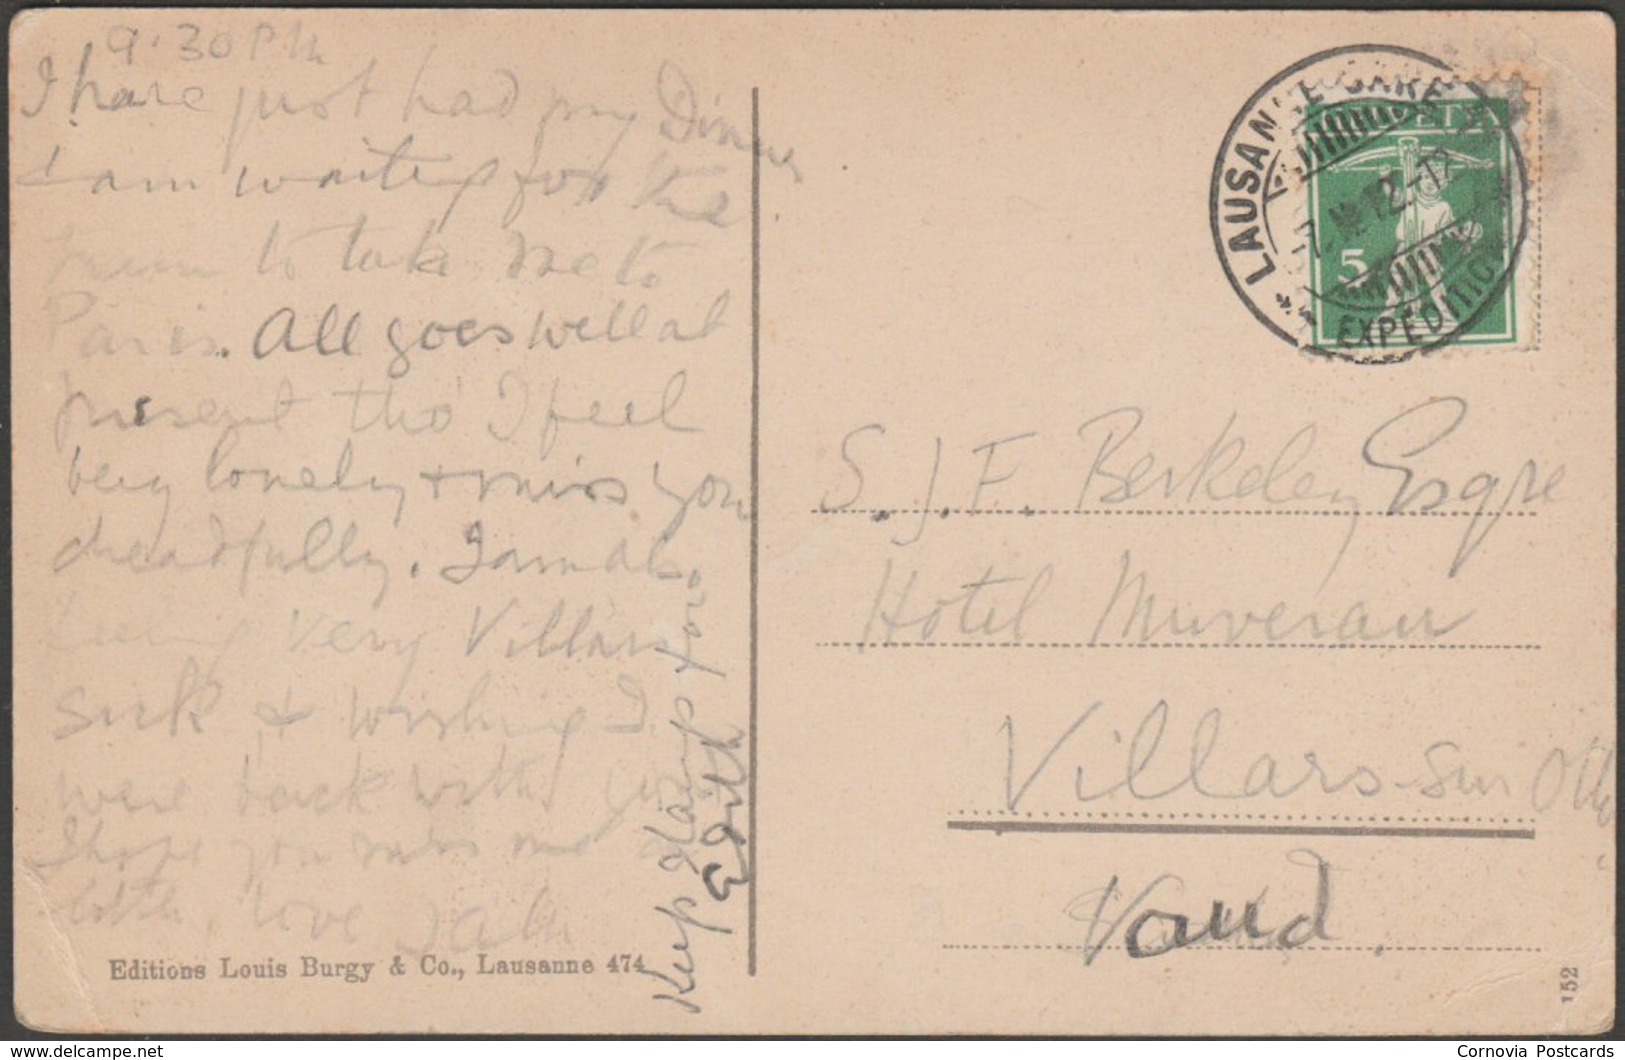 9.30 PM
I have just had my Dinner
I am waiting for the
train to take me to
Paris. All goes well at
present tho' I feel
very lonely & miss you
dreadfully. I am also
feeling very Villars
sick & wishing I
were back with you
I hope you miss me a
little, love
Keep Happy for
Edith
Editions Louis Burgy & Co., Lausanne 474
LAUSANNE GARE
EXPÉDITION
HELVETIA
5
S. J. F. Berkeley Esqre
Hotel Muveran
Villars-sur Ollon
Vaud.
152
Cornovia Postcards
delcampe.net